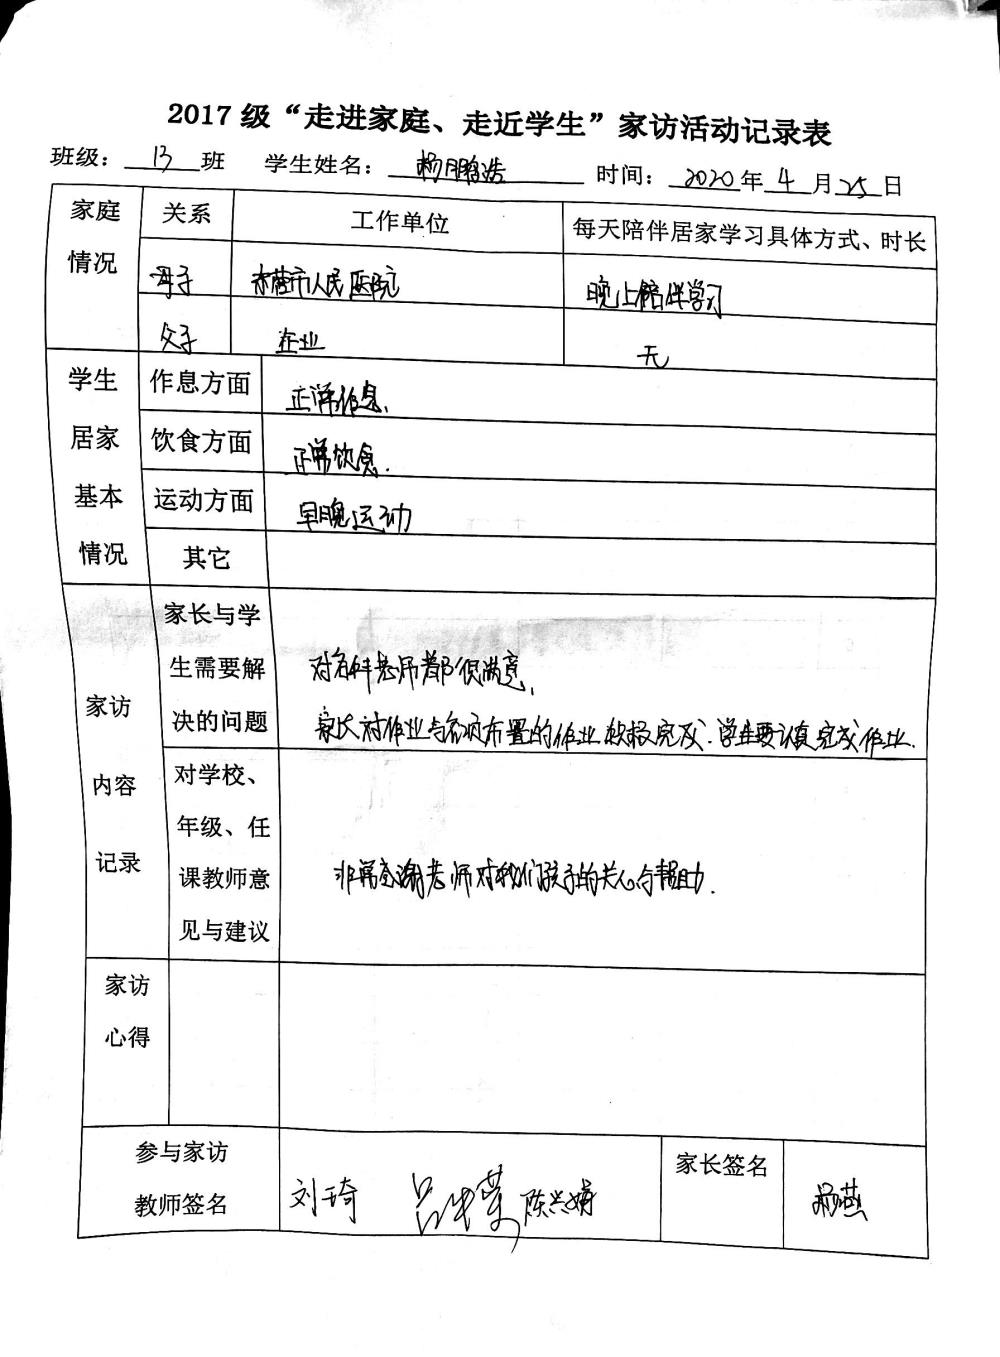 2017 级“走进家庭、走近学生”家访活动记录表
班级： 13 班 学生姓名： 杨鹏浩 时间： 2020 年 4 月 25 日
家庭情况 关系 工作单位 每天陪伴居家学习具体方式、时长
母子 市人民医院 晚上陪伴学习
父子 企业 无
学生居家基本情况 作息方面 正常作息.
饮食方面 正常饮食.
运动方面 早晚运动
其它
家访内容记录
家长与学
生需要解
决的问题
对各科老师都很满意,
家长对作业与各项布置的作业 完成. 学生要认真完成作业.
对学校、
年级、任
课教师意
见与建议
非常感谢老师对我们孩子的关心与帮助.
家访
心得
参与家访
教师签名
刘琦 陈兴娟
家长签名
杨燕